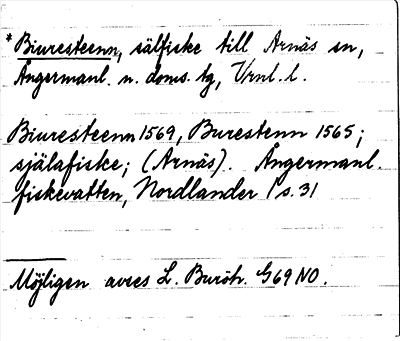 * Biuresteenn, sälfiske till Arnäs sn,
Ångermanl. n. doms. tg, Vrnl. l.
Biuresteenn 1569, Burestenn 1565;
själafiske; (Arnäs). Ångermanl.
fiskevatten, Nordlander 1 s. 31
Möjligen avses L. Buröh. G69 NO.